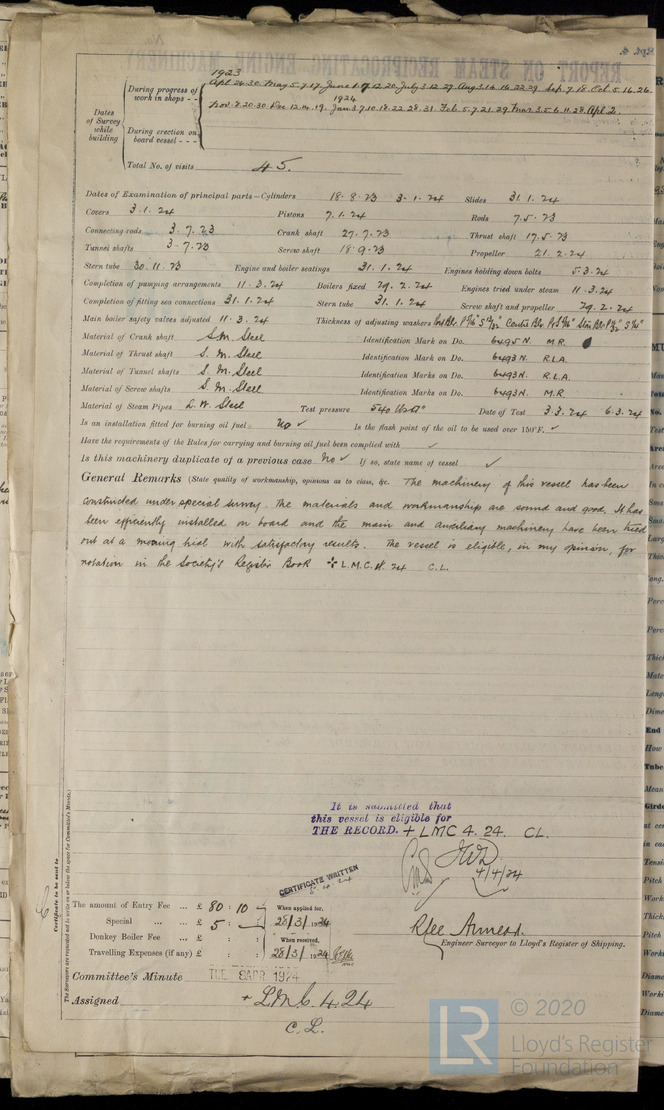 REPORT ON STEAM RECIPROCATING ENGINE MACHINERY
1923
Dates of Survey while building
During progress of work in shops - - Apl. 24.30. May 5.7.17. June 1. 12.20 July 3.12.27. Aug 3.14.16.22.29. Sep. 7.18. Oct. 5.16.26.
1924
During erection on board vessel - - - Nov. 20.30 Dec 12.14.19. Jan 3.7.10.18.22.28.31 Feb. 5.7.21.29. Mar 3.5.6.11.28. Apl 2.
Total No. of visits 45.
Dates of Examination of principal parts—Cylinders 18.8.23 3.1.24 Slides 31.1.24
Covers 3.1.24 Pistons 7.1.24 Rods 7.5.23
Connecting rods 3.7.23 Crank shaft 27.7.23 Thrust shaft 17.5.23
Tunnel shafts 3.7.23 Screw shaft 18.9.23 Propeller 21.2.24
Stern tube 30.11.23 Engine and boiler seatings 31.1.24 Engines holding down bolts 5.3.24
Completion of pumping arrangements 11.3.24 Boilers fixed 29.2.24 Engines tried under steam 11.3.24
Completion of fitting sea connections 31.1.24 Stern tube 31.1.24 Screw shaft and propeller 29.2.24
Main boiler safety valves adjusted 11.3.24 Thickness of adjusting washers
Material of Crank shaft S.M. Steel Identification Mark on Do. 6495N. M.R.
Material of Thrust shaft S.M. Steel Identification Mark on Do. 6493N. R.L.A.
Material of Tunnel shafts S.M. Steel Identification Marks on Do. 6493N. R.L.A.
Material of Screw shafts S.M. Steel Identification Marks on Do. 6493N. M.R.
Material of Steam Pipes L.W. Steel Test pressure 540 lbs Date of Test 3.3.24 6.3.24
Is an installation fitted for burning oil fuel No ✓ Is the flash point of the oil to be used over 150°F. ✓
Have the requirements of the Rules for carrying and burning oil fuel been complied with ✓
Is this machinery duplicate of a previous case No ✓ If so, state name of vessel ✓
General Remarks (State quality of workmanship, opinions as to class, &c. The machinery of this vessel has been
constructed under special survey. The materials and workmanship are sound and good. It has
been efficiently installed on board and the main and auxiliary machinery have been tried
out at a mooring trial with satisfactory results. The vessel is eligible, in my opinion, for
notation in the Society's Register Book ✠ L.M.C. 4. 24 C.L.
It is submitted that
this vessel is eligible for
THE RECORD. + LMC 4. 24. CL.
4/4/24
CERTIFICATE WRITTEN
The amount of Entry Fee ... £ 80 : 10 When applied for,
Special ... ... £ 5 : 28/3/1924
Donkey Boiler Fee ... £ When received,
Travelling Expenses (if any) £ 28/3/1924
Engineer Surveyor to Lloyd's Register of Shipping.
Committee's Minute TUE 8 APR 1924
Assigned + L.M.C. 4.24
C.L.
Certificate to be sent to
The Surveyors are requested not to write on or below the space for Committee's Minute.
LR
© 2020
Lloyd's Register
Foundation